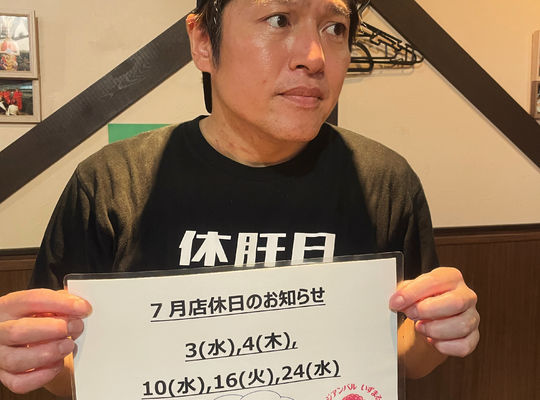 休肝日
7月店休日のお知らせ
3(水),4(木),
10(水),16(火),24(水)
ジアンバル いずまる